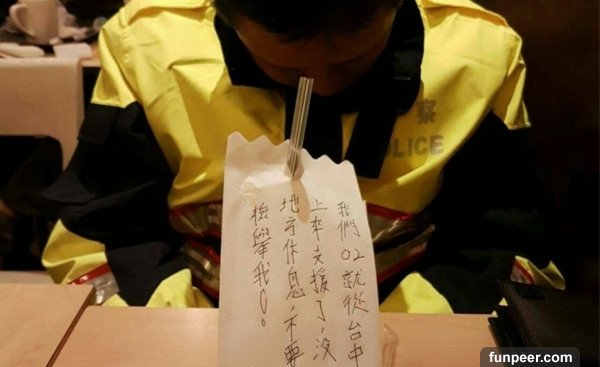 察
POLICE
我們02就從台中
上來支援了,沒
地方休息,不要
檢舉我!。
funpeer.com